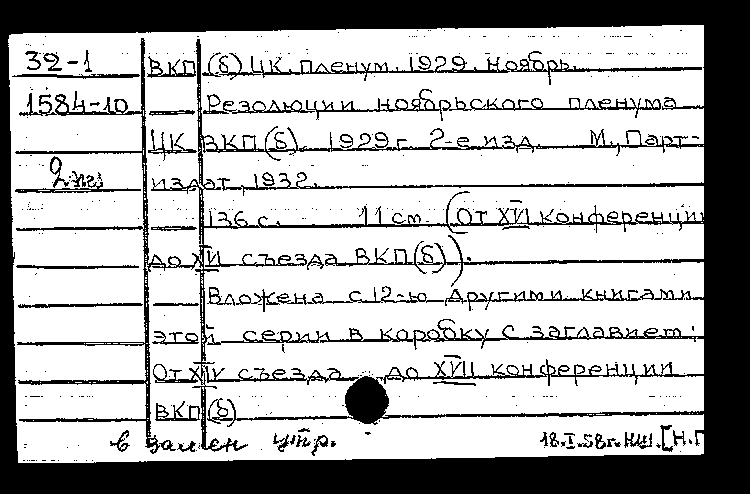 32-1 ВКП(б) ЦК. Пленум. 1929. Ноябрь.
1584-10 Резолюции ноябрьского пленума
ЦК ВКП(б). 1929 г. 2-е изд. М., Парт-
издат, 1932.
136 с. 11 см. (От XVI конференции
до XVI съезда ВКП(б)).
Вложена с 12-ю другими книгами
этой серии в коробку с заглавием:
От XIV съезда до XVII конференции
ВКП(б)
в замен утр. 18.I.58г. НШ. [Н.П